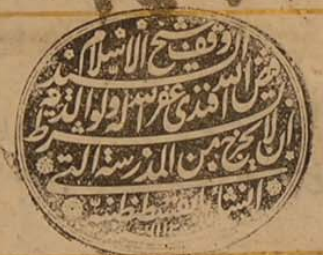 وقف شيخ الاسلام السيد
فيض الله افندى غفر الله له ولوالديه
بشرط ان لا يخرج من المدرسة التى
انشأها بقسطنطينية